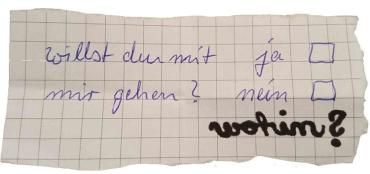 willst du mit ja
mir gehen? nein
wohin?